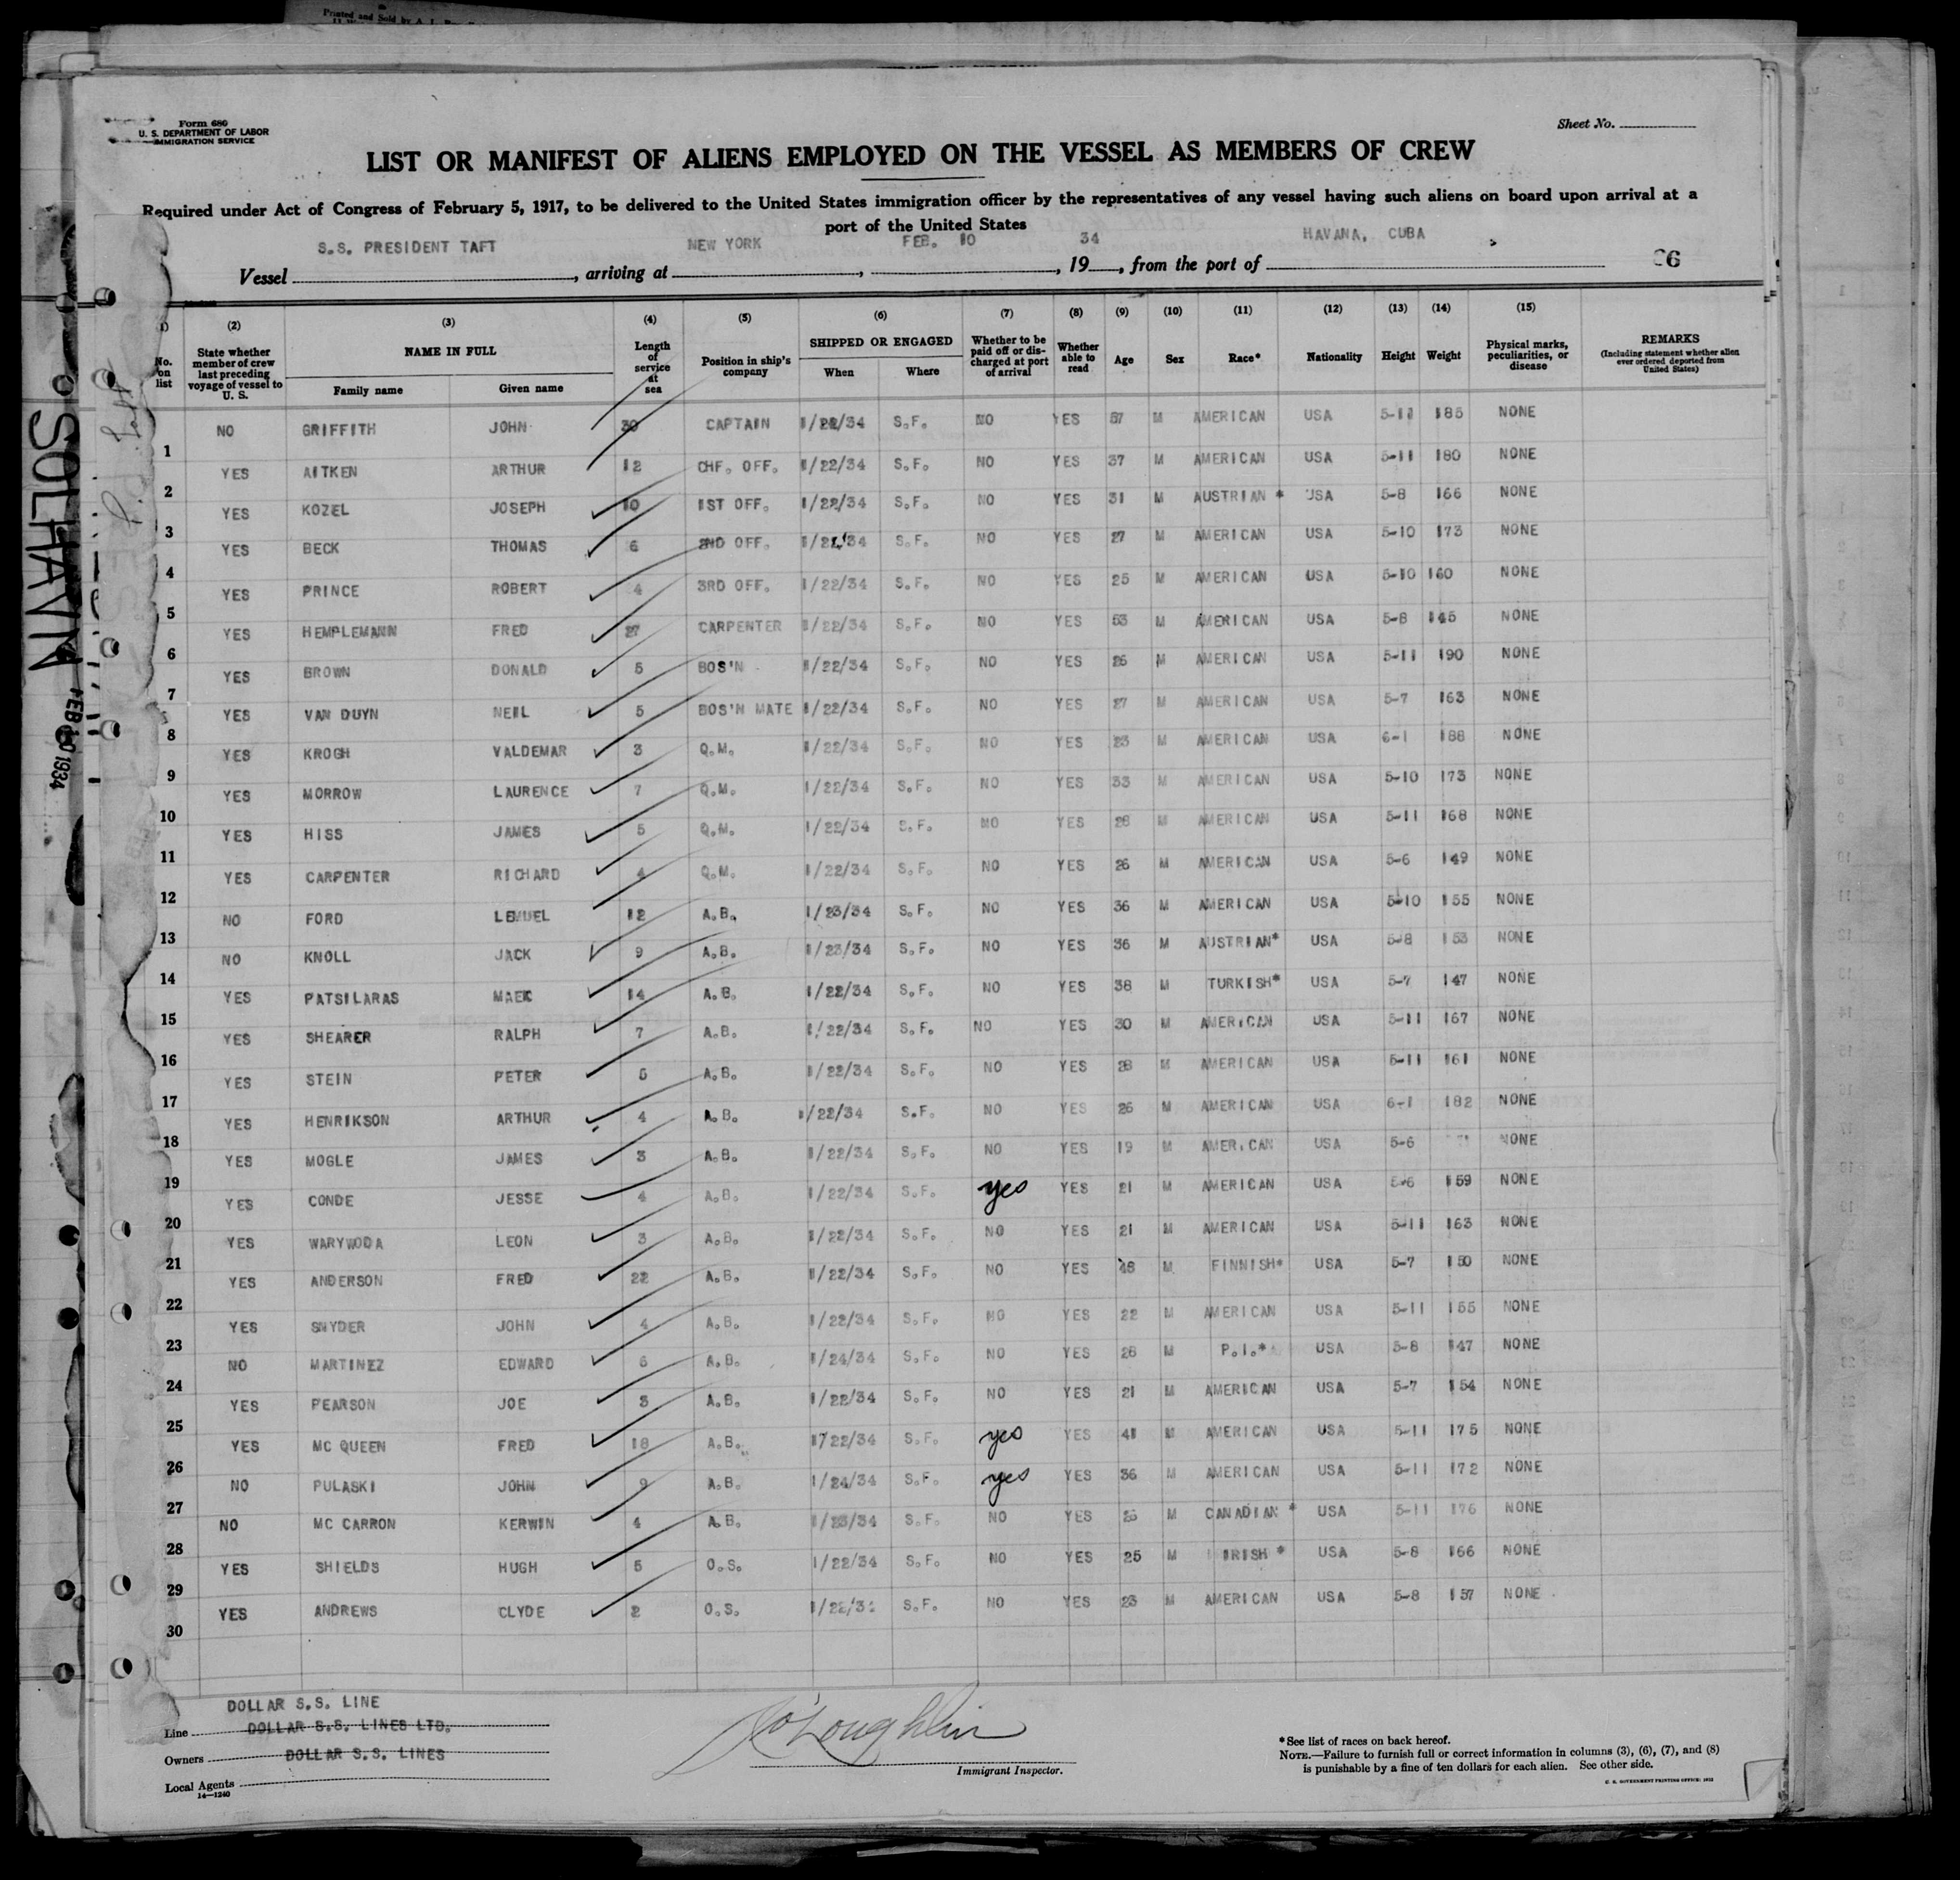 Printed and Sold by A. L.
Form 680
U. S. DEPARTMENT OF LABOR
IMMIGRATION SERVICE
Sheet No.
LIST OR MANIFEST OF ALIENS EMPLOYED ON THE VESSEL AS MEMBERS OF CREW
Required under Act of Congress of February 5, 1917, to be delivered to the United States immigration officer by the representatives of any vessel having such aliens on board upon arrival at a
port of the United States
Vessel S.S. PRESIDENT TAFT, arriving at NEW YORK, FEB. 10, 1934, from the port of HAVANA, CUBA
(2) (3) (4) (5) (6) (7) (8) (9) (10) (11) (12) (13) (14) (15)
No. on list
State whether member of crew last preceding voyage of vessel to U. S.
NAME IN FULL
Family name Given name
Length of service at sea
Position in ship's company
SHIPPED OR ENGAGED
When Where
Whether to be paid off or discharged at port of arrival
Whether able to read
Age Sex Race* Nationality Height Weight
Physical marks, peculiarities, or disease
REMARKS
(Including statement whether alien ever ordered deported from United States)
1 NO GRIFFITH JOHN 30 CAPTAIN 1/22/34 S.F. NO YES 57 M AMERICAN USA 5-11 185 NONE
2 YES AITKEN ARTHUR 12 CHF. OFF. 1/22/34 S.F. NO YES 37 M AMERICAN USA 5-11 180 NONE
3 YES KOZEL JOSEPH 10 1ST OFF. 1/22/34 S.F. NO YES 31 M AUSTRIAN * USA 5-8 166 NONE
4 YES BECK THOMAS 6 2ND OFF. 1/22/34 S.F. NO YES 27 M AMERICAN USA 5-10 173 NONE
5 YES PRINCE ROBERT 4 3RD OFF. 1/22/34 S.F. NO YES 25 M AMERICAN USA 5-10 160 NONE
6 YES HEMPLEMANN FRED 27 CARPENTER 1/22/34 S.F. NO YES 53 M AMERICAN USA 5-8 145 NONE
7 YES BROWN DONALD 5 BOS'N 1/22/34 S.F. NO YES 26 M AMERICAN USA 5-11 190 NONE
8 YES VAN DUYN NEIL 5 BOS'N MATE 1/22/34 S.F. NO YES 27 M AMERICAN USA 5-7 163 NONE
9 YES KROGH VALDEMAR 3 Q.M. 1/22/34 S.F. NO YES 23 M AMERICAN USA 6-1 188 NONE
10 YES MORROW LAURENCE 7 Q.M. 1/22/34 S.F. NO YES 33 M AMERICAN USA 5-10 173 NONE
11 YES HISS JAMES 5 Q.M. 1/22/34 S.F. NO YES 28 M AMERICAN USA 5-11 168 NONE
12 YES CARPENTER RICHARD 4 Q.M. 1/22/34 S.F. NO YES 26 M AMERICAN USA 5-6 149 NONE
13 NO FORD LEMUEL 12 A.B. 1/23/34 S.F. NO YES 36 M AMERICAN USA 5-10 155 NONE
14 NO KNOLL JACK 9 A.B. 1/23/34 S.F. NO YES 36 M AUSTRIAN* USA 5-8 153 NONE
15 YES PATSILARAS 14 A.B. 1/22/34 S.F. NO YES 38 M TURKISH* USA 5-7 147 NONE
16 YES SHEARER RALPH 7 A.B. 1/22/34 S.F. NO YES 30 M AMERICAN USA 5-11 167 NONE
17 YES STEIN PETER 5 A.B. 1/22/34 S.F. NO YES 28 M AMERICAN USA 5-11 161 NONE
18 YES HENRIKSON ARTHUR 4 A.B. 1/22/34 S.F. NO YES 26 M AMERICAN USA 6-1 182 NONE
19 YES MOGLE JAMES 3 A.B. 1/22/34 S.F. NO YES 19 M AMERICAN USA 5-6 NONE
20 YES CONDE JESSE 4 A.B. 1/22/34 S.F. yes YES 21 M AMERICAN USA 5-6 159 NONE
21 YES WARYWODA LEON 3 A.B. 1/22/34 S.F. NO YES 21 M AMERICAN USA 5-11 163 NONE
22 YES ANDERSON FRED 22 A.B. 1/22/34 S.F. NO YES 48 M FINNISH* USA 5-7 150 NONE
23 YES SNYDER JOHN 4 A.B. 1/22/34 S.F. NO YES 22 M AMERICAN USA 5-11 155 NONE
24 NO MARTINEZ EDWARD 6 A.B. 1/24/34 S.F. NO YES 28 M P.I.* USA 5-8 147 NONE
25 YES PEARSON JOE 3 A.B. 1/22/34 S.F. NO YES 21 M AMERICAN USA 5-7 154 NONE
26 YES MC QUEEN FRED 18 A.B. 1/22/34 S.F. yes YES 41 M AMERICAN USA 5-11 175 NONE
27 NO PULASKI JOHN 9 A.B. 1/24/34 S.F. yes YES 36 M AMERICAN USA 5-11 172 NONE
28 NO MC CARRON KERWIN 4 A.B. 1/23/34 S.F. NO YES M CANADIAN * USA 5-11 176 NONE
29 YES SHIELDS HUGH 5 O.S. 1/22/34 S.F. NO YES 25 M IRISH * USA 5-8 166 NONE
30 YES ANDREWS CLYDE 2 O.S. 1/22/34 S.F. NO YES 23 M AMERICAN USA 5-8 157 NONE
DOLLAR S.S. LINE
Line DOLLAR S.S. LINES LTD.
Owners DOLLAR S.S. LINES
Local Agents
14—1240
O'Loughlin
Immigrant Inspector.
*See list of races on back hereof.
NOTE.—Failure to furnish full or correct information in columns (3), (6), (7), and (8)
is punishable by a fine of ten dollars for each alien. See other side.
FEB 10 1934